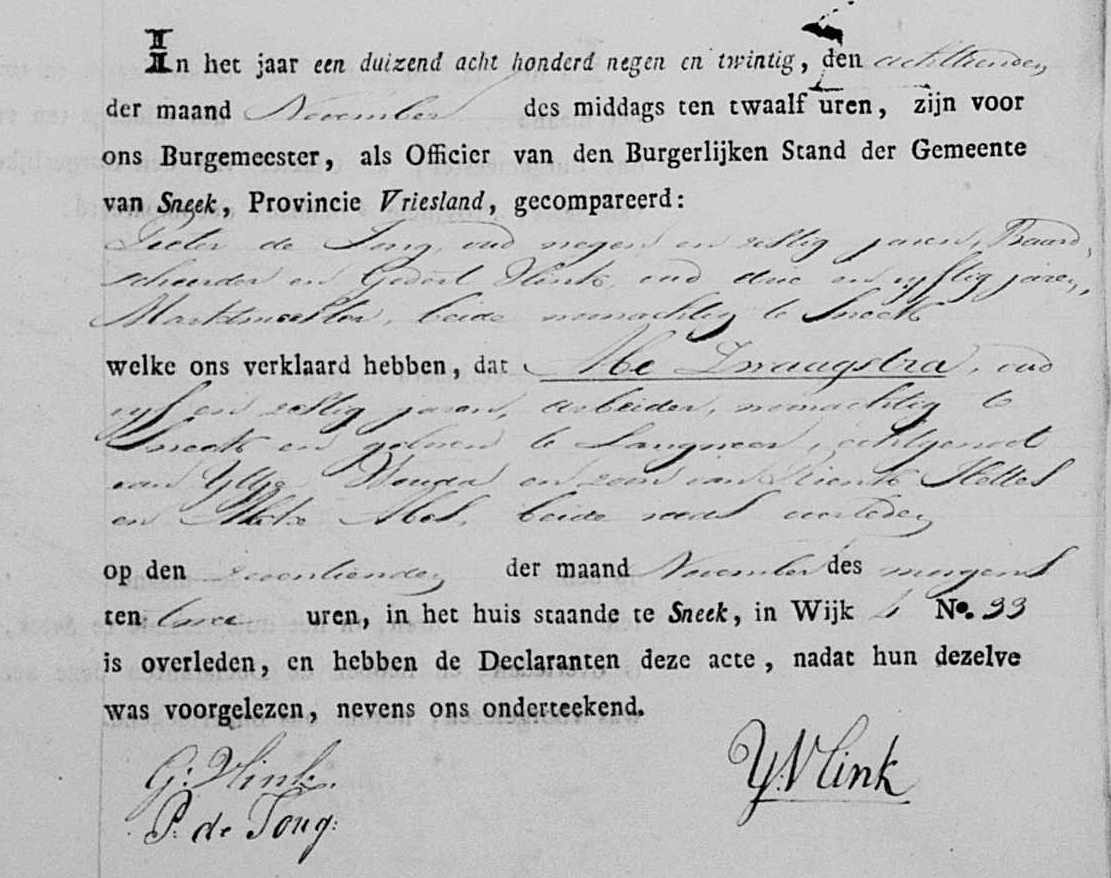 In het jaar een duizend acht honderd negen en twintig, den achttienden
der maand November des middags ten twaalf uren, zijn voor
ons Burgemeester, als Officier van den Burgerlijken Stand der Gemeente
van Sneek, Provincie Vriesland, gecompareerd:
Pieter de Jong, oud negen en zestig jaren, Baard
scheerder en Godert Vlink, oud drie en vyftig jaren,
Marktmeester, beide woonachtig te Sneek
welke ons verklaard hebben, dat Abe Zwaagstra, oud
vyf en zestig jaren, arbeider, woonachtig te
Sneek en geboren te Langweer, echtgenoot
van Yttje Wouda en zoon van Rienk
en Abes, beide reeds overleden
op den zeventienden der maand November des morgens
ten twee uren, in het huis staande te Sneek, in Wijk 4 No. 33
is overleden, en hebben de Declaranten deze acte, nadat hun dezelve
was voorgelezen, nevens ons onderteekend.
G: Vlink.
Y. Vlink
P. de Jong.